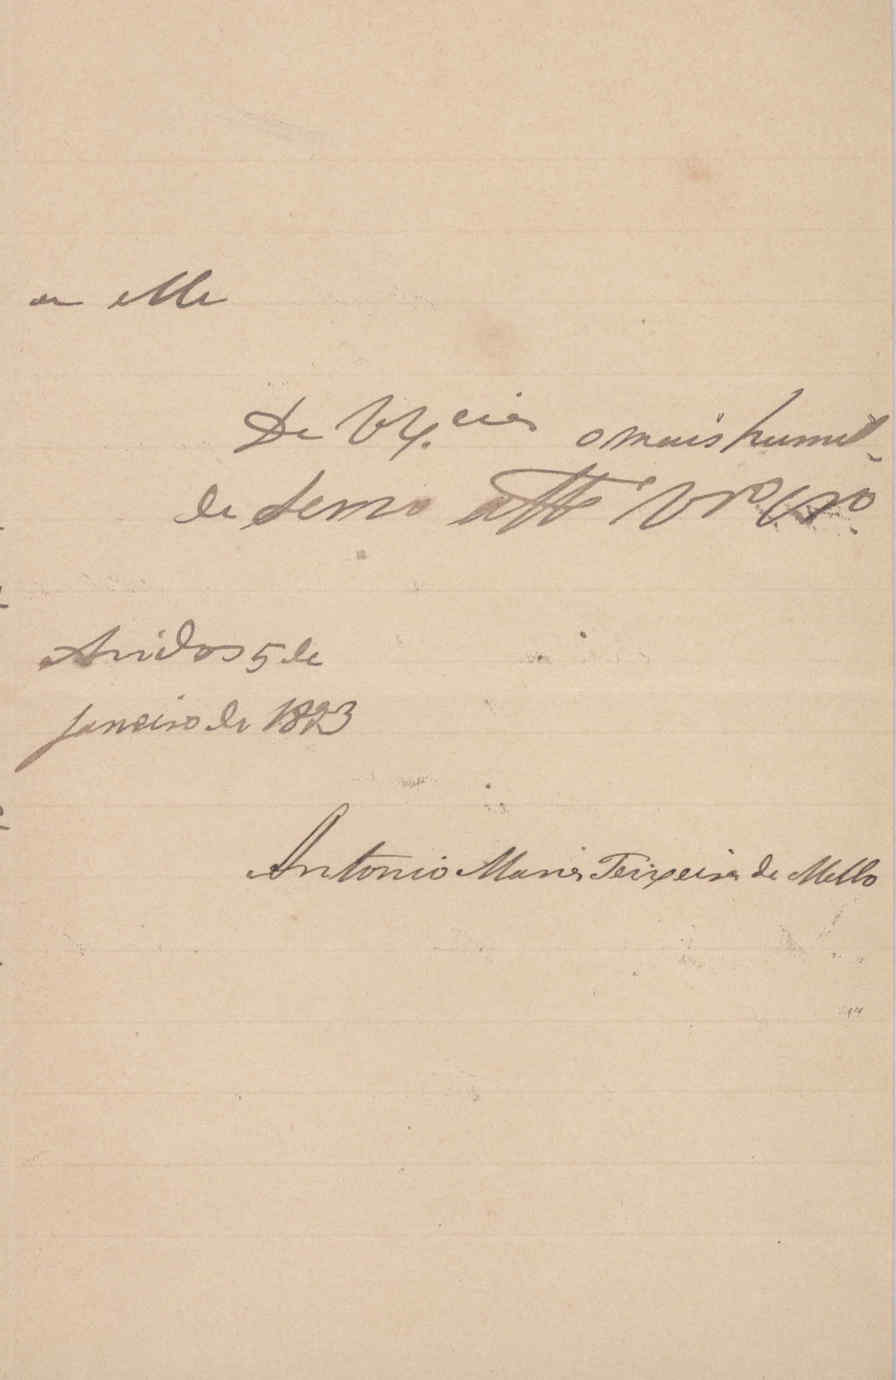 De V Ex.cia o mais humil-
de servo atto Vor Cro
Avidos 5 de
janeiro de 1893
Antonio Maria Teixeira de Mello